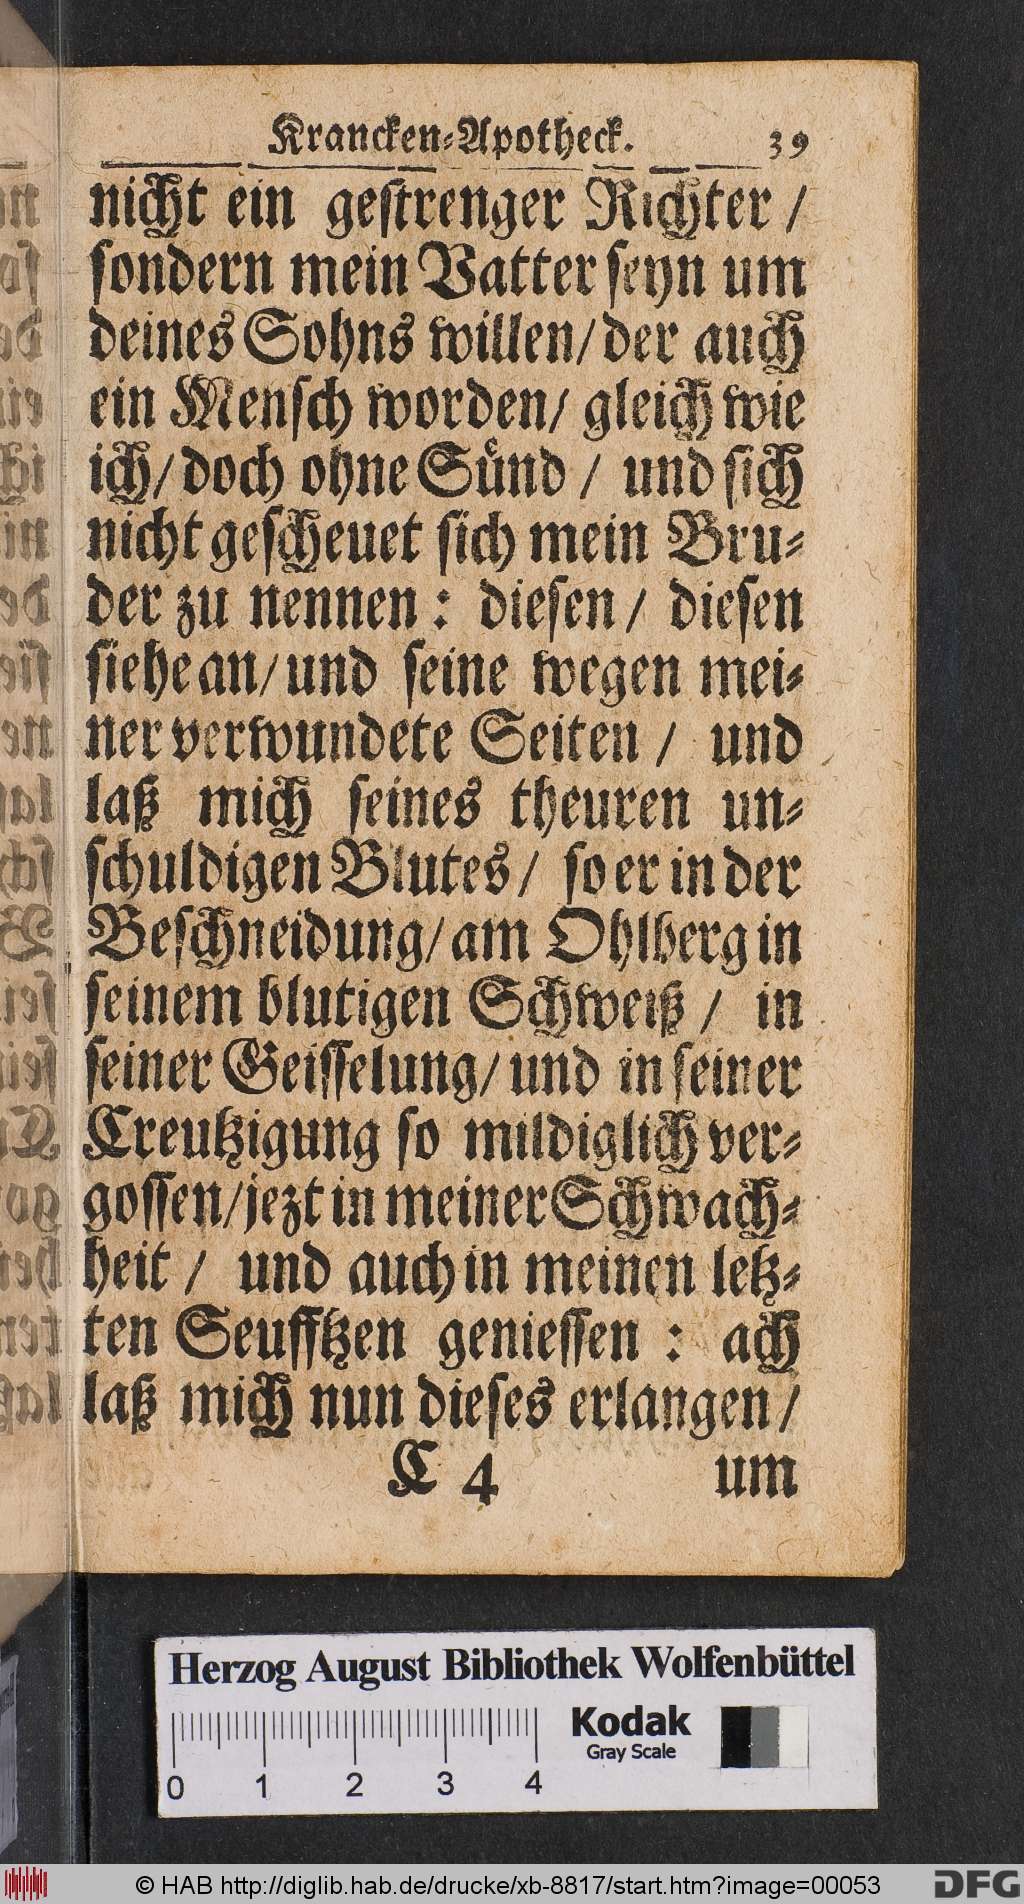 Krancken-Apotheck. 39
nicht ein gestrenger Richter /
sondern mein Vatter seyn um
deines Sohns willen / der auch
ein Mensch worden / gleich wie
ich / doch ohne Sünd / und sich
nicht gescheuet sich mein Bru-
der zu nennen : diesen / diesen
siehe an / und seine wegen mei-
ner verwundete Seiten / und
laß mich seines theuren un-
schuldigen Blutes / so er in der
Beschneidung / am Ohlberg in
seinem blutigen Schweiß / in
seiner Geisselung / und in seiner
Creutzigung so mildiglich ver-
gossen / jezt in meiner Schwach-
heit / und auch in meinen letz-
ten Seufftzen geniessen : ach
laß mich nun dieses erlangen /
C 4 um
Herzog August Bibliothek Wolfenbüttel
Kodak
Gray Scale
0 1 2 3 4
© HAB http://diglib.hab.de/drucke/xb-8817/start.htm?image=00053
DFG